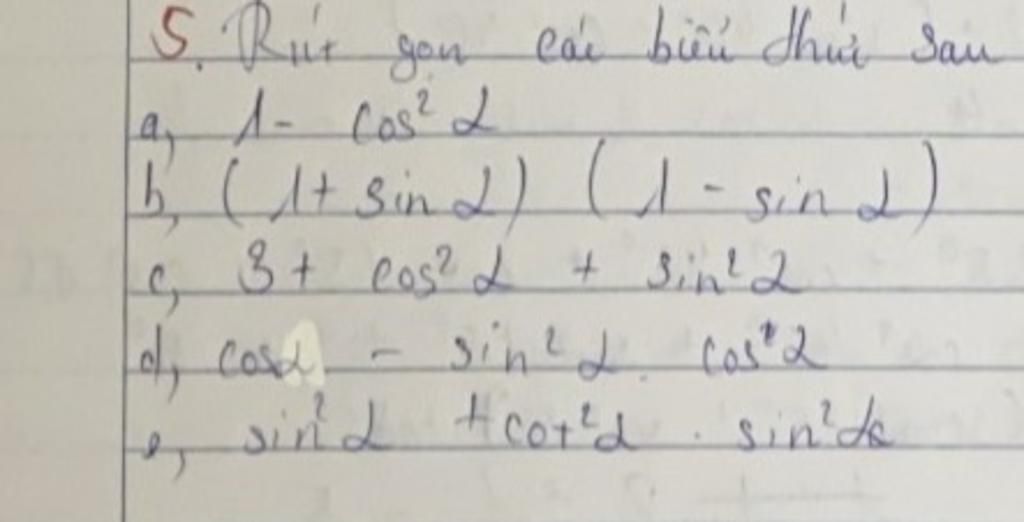 5. Rút gọn các biểu thức sau
a, 1 - cos² α
b, (1 + sin α) (1 - sin α)
c, 3 + cos² α + sin² α
d, cosα - sin² α . cos² α
e, sin² α + cot² α . sin² α